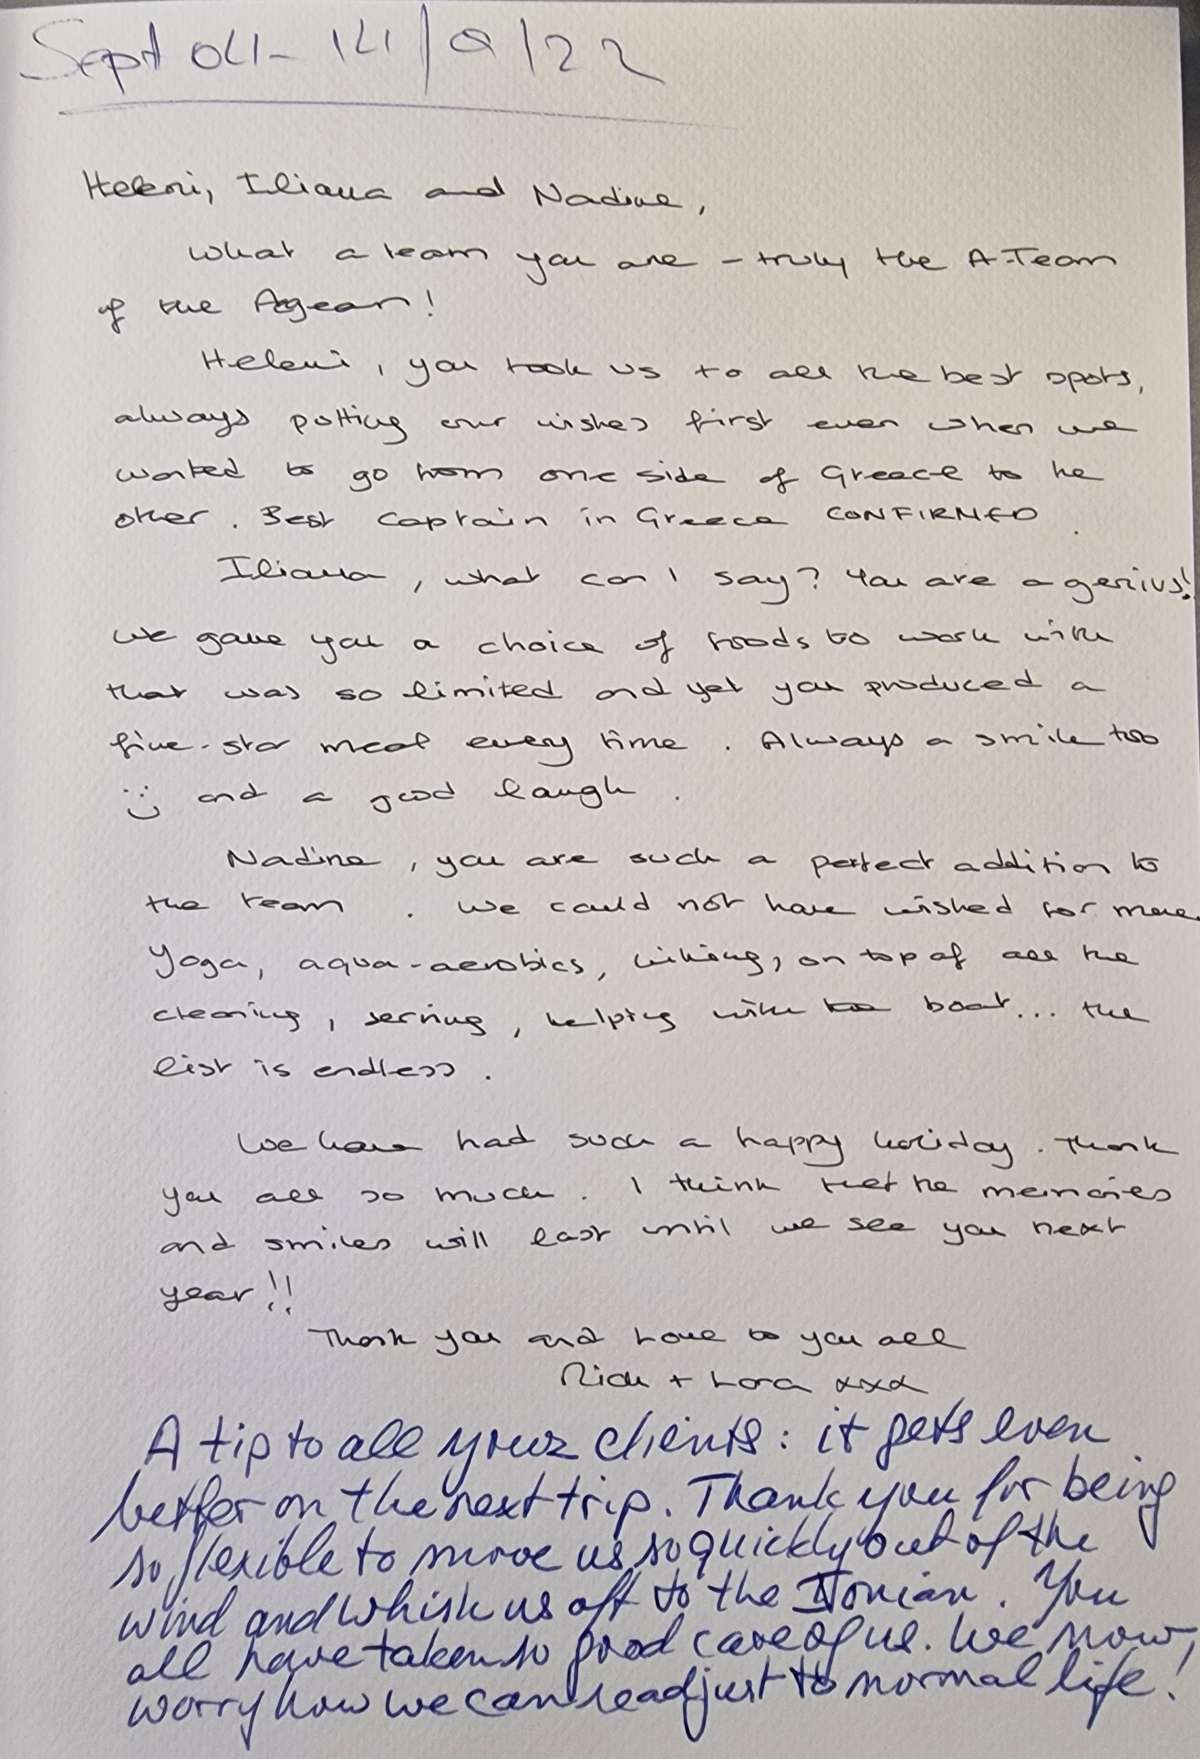 Sept 04 - 14/9/22
Heleni, Iliana and Nadine,
What a team you are - truly the A-Team
of the Agean!
Heleni, you took us to all the best spots,
always putting our wishes first even when we
wanted to go from one side of Greece to the
other. Best captain in Greece CONFIRMED.
Iliana, what can I say? You are a genius!
We gave you a choice of foods to work with
that was so limited and yet you produced a
five-star meal every time. Always a smile too
:) and a good laugh.
Nadine, you are such a perfect addition to
the team. We could not have wished for more.
Yoga, aqua-aerobics, hiking, on top of all the
cleaning, serving, helping with the boat... the
list is endless.
We have had such a happy holiday. Thank
you all so much. I think that the memories
and smiles will last until we see you next
year!!
Thank you and Love to you all
Rick + Lora xxx
A tip to all your clients: it gets even
better on the next trip. Thank you for being
so flexible to move us so quickly out of the
wind and whisk us off to the Ionian. You
all have taken so good care of us. We now
worry how we can readjust to normal life!